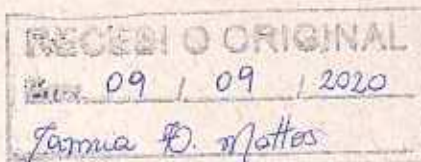 RECEBI O ORIGINAL
Em 09 / 09 / 2020
D. Mattos